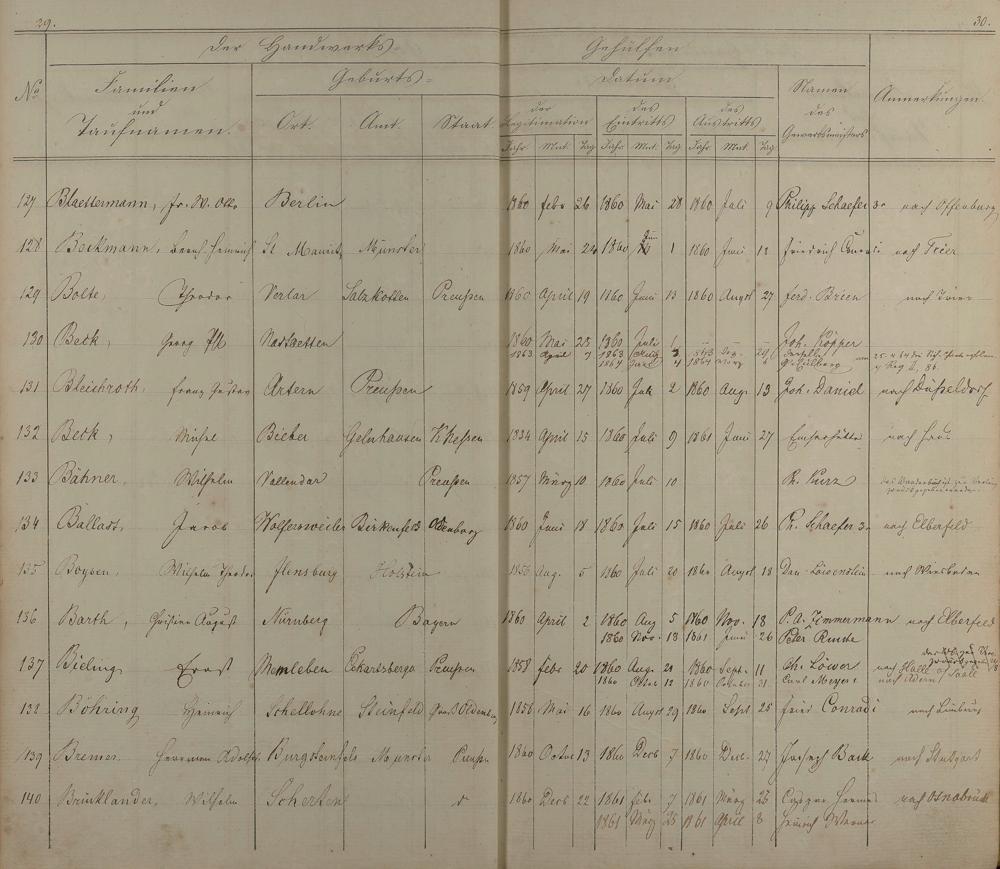 29.
30.
Der Handwerks- Gehülfen
No
Familien und Taufnamen.
Geburts-
Ort. Amt. Staat.
Datum
der Legitimation
des Eintritts
des Austritts
Jahr Mnt. Tag Jahr Mnt. Tag Jahr Mnt. Tag
Namen des Gewerbsmeisters
Anmerkungen.
127 Blaettermann, fr. W. Otto Berlin 1860 febr 26 1860 Mai 28 1860 Juli 9 Philipp Schaefer 3r nach Offenburg
128 Beckmann, Bernh Heinrich St Mauritz Münster 1860 Mai 24 1860 Juni 1 1860 Juni 12 Friedrich nach Trier
129 Bolte, Theodor Verlar Salzkotten Preußen 1860 April 19 1860 Juni 13 1860 Augst 27 Ferd. Brien nach Trier
130 Beck, Georg Ph Nastaetten 1860 Mai 25 1860 Juli 1 Joh. Köpper
1863 April 7 1863 3 1863 29 Derselbe
1864 4 1864 März 6
131 Bleichroth, Franz Gustav Artern Preußen 1859 April 27 1860 Juli 2 1860 Aug. 13 Joh. Daniel nach Düsseldorf
132 Beck, Bieber Gelnhausen K Hessen 1834 April 15 1860 Juli 9 1861 Juni 27 Emserhütte nach Haus
133 Bähner, Wilhelm Vallendar Preußen 1857 März 10 1860 Juli 10 Ph. Kurz
134 Ballast, Jacob Wolfersweiler Birkenfeld Oldenburg 1860 Juni 18 1860 Juli 15 1860 Juli 26 Ph. Schaefer 3r nach Elberfeld
135 Boysen, Wilhelm Theodor Flensburg Holstein 1856 Aug. 5 1860 Juli 20 1860 Augst 18 Dan. Löwenstein nach Wiesbaden
136 Barth, Christian August Nürnberg Bayern 1860 April 2 1860 Aug 5 1860 Nov. 18 P. A. Zimmermann nach Elberfeld
1860 Nov. 18 1861 Juni 26 Peter
137 Bieling, Ernst Memleben Eckartsberga Preußen 1858 febr 20 1860 Aug. 21 1860 Sept. 11 Ch. Löwer nach Halle a/Saale
1860 Octbr 12 1860 31 Carl Meyer
138 Böhring Heinrich Schellohne Steinfeld Groß Oldenburg 1856 Mai 16 1860 Augst 29 1860 Sept 25 Conradi nach Limburg
139 Bremer, Herrman Adolf Burgsteinfels Münster Preußen 1860 Octbr 13 1860 Decb 7 1860 Dec. 27 Joseph Back nach Stuttgart
140 Brinklander, Wilhelm Scherten 1860 Decb 22 1861 febr 7 1861 März 26 nach Osnabrück
1861 März 25 1861 April 8 Heinrich Werner